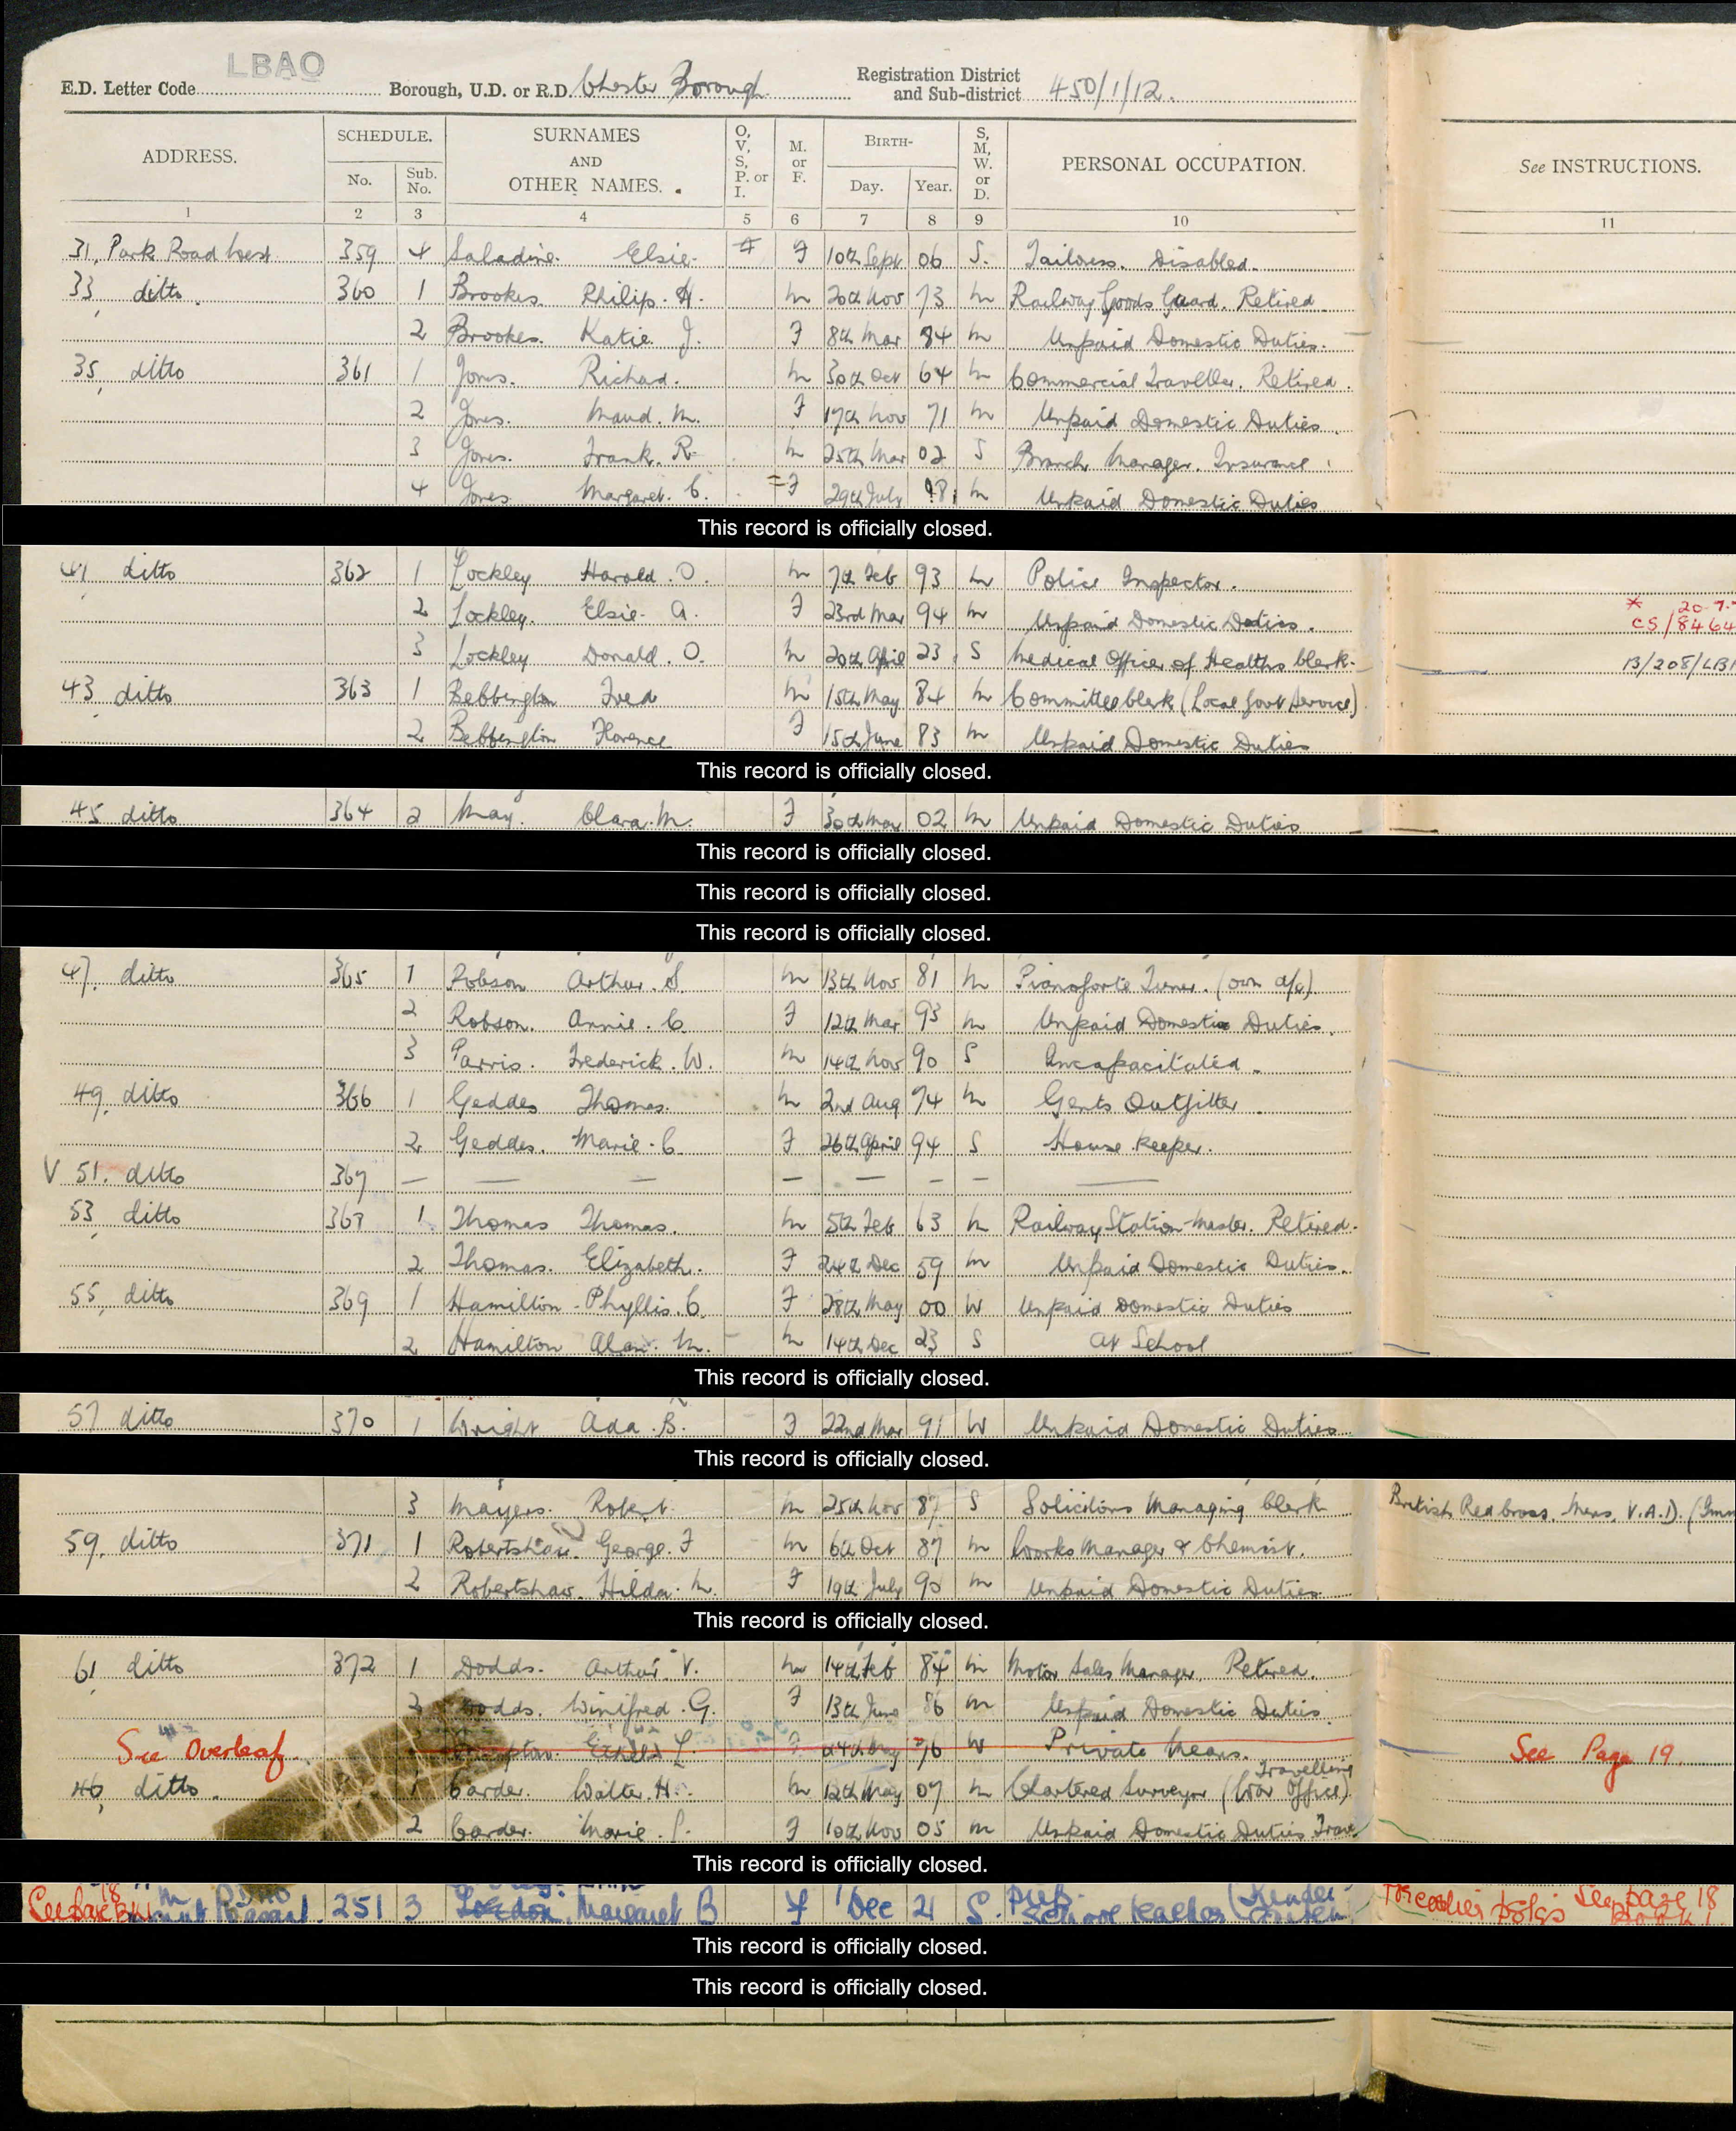 LBAO
E.D. Letter Code Borough, U.D. or R.D. Chester Borough Registration District and Sub-district 450/1/12.
ADDRESS. SCHEDULE. No. Sub. No. SURNAMES AND OTHER NAMES. O, V, S, P. or I. M. or F. BIRTH- Day. Year. S, M, W. or D. PERSONAL OCCUPATION. See INSTRUCTIONS.
1 2 3 4 5 6 7 8 9 10 11
31, Park Road West 359 4 Saladine. Elsie. F 10th Sept 06 S. Tailoress. Disabled.
33, ditto. 360 1 Brookes. Philip. H. M 20th Nov 73 M Railway Goods Guard. Retired
2 Brookes. Katie J. F 8th Mar 84 M Unpaid Domestic Duties.
35, ditto 361 1 Jones. Richard. M 30th Oct 64 M Commercial Traveller. Retired.
2 Jones. Maud. M. F 17th Nov 71 M Unpaid Domestic Duties.
3 Jones. Frank. R. M 25th Mar 02 S Branch Manager. Insurance
4 Jones Margaret. C. F 29th July M Unpaid Domestic Duties
This record is officially closed.
41 ditto 362 1 Lockley Harold. O. M 7th Feb 93 M Police Inspector.
2 Lockley. Elsie. A. F 23rd Mar 94 M Unpaid Domestic Duties. * 20.7.
CS/8464
3 Lockley Donald. O. M 20th April 23 S Medical Officer of Healths Clerk. B/208/LB
43 ditto 363 1 Bebbington Fred M 15th May 84 M Committee Clerk (Local Govt Service)
2 Bebbington Florence F 15th June 83 M Unpaid Domestic Duties
This record is officially closed.
45 ditto 364 2 May. Clara. M. F 30th Mar 02 M Unpaid Domestic Duties
This record is officially closed.
This record is officially closed.
This record is officially closed.
47. ditto 365 1 Robson Arthur. S. M 13th Nov 81 M Pianoforte Tuner. (own a/c)
2 Robson. Annie. C. F 12th Mar 93 M Unpaid Domestic Duties.
3 Parris. Frederick. W. M 14th Nov 90 S Incapacitated.
49, ditto 366 1 Geddes Thomas. M 2nd Aug 74 M Gents Outfitter.
2 Geddes. Marie. C. F 26th April 94 S House keeper.
V 51. ditto 367 — — — — — — — —
53, ditto 368 1 Thomas Thomas. M 5th Feb 63 M Railway Station Master. Retired.
2 Thomas. Elizabeth. F 24th Dec 59 M Unpaid Domestic Duties.
55, ditto 369 1 Hamilton - Phyllis. C. F 28th May 00 W Unpaid Domestic Duties
2 Hamilton Alan. M. M 14th Dec 23 S At School
This record is officially closed.
57 ditto 370 1 Wright Ada. B. F 22nd Mar 91 W Unpaid Domestic Duties
This record is officially closed.
3 Mayers. Robert. M 25th Nov 87 S Solicitors Managing Clerk British Red Cross. Mens. V.A.D.
59. ditto 371 1 Robertshaw. George. F M 6th Oct 87 M Works Manager & Chemist.
2 Robertshaw. Hilda. M. F 19th July 90 M Unpaid Domestic Duties
This record is officially closed.
61 ditto 372 1 Dodds. Arthur. V. M 14th Feb 84 M Motor Sales Manager. Retired.
2 Dodds. Winifred. G. F 13th June 86 M Unpaid Domestic Duties.
See Overleaf. Ethel L. 24th 76 W Private Means. See Page 19.
46, ditto. 1 Carder. Walter. H. M 12th May 07 M Chartered Surveyor (War Office) Travelling
2 Carder. Marie. F 10th Nov 05 M Unpaid Domestic Duties Trav
This record is officially closed.
18 251 3 Margaret B F Dec 21 S. school teacher See page 18
This record is officially closed.
This record is officially closed.